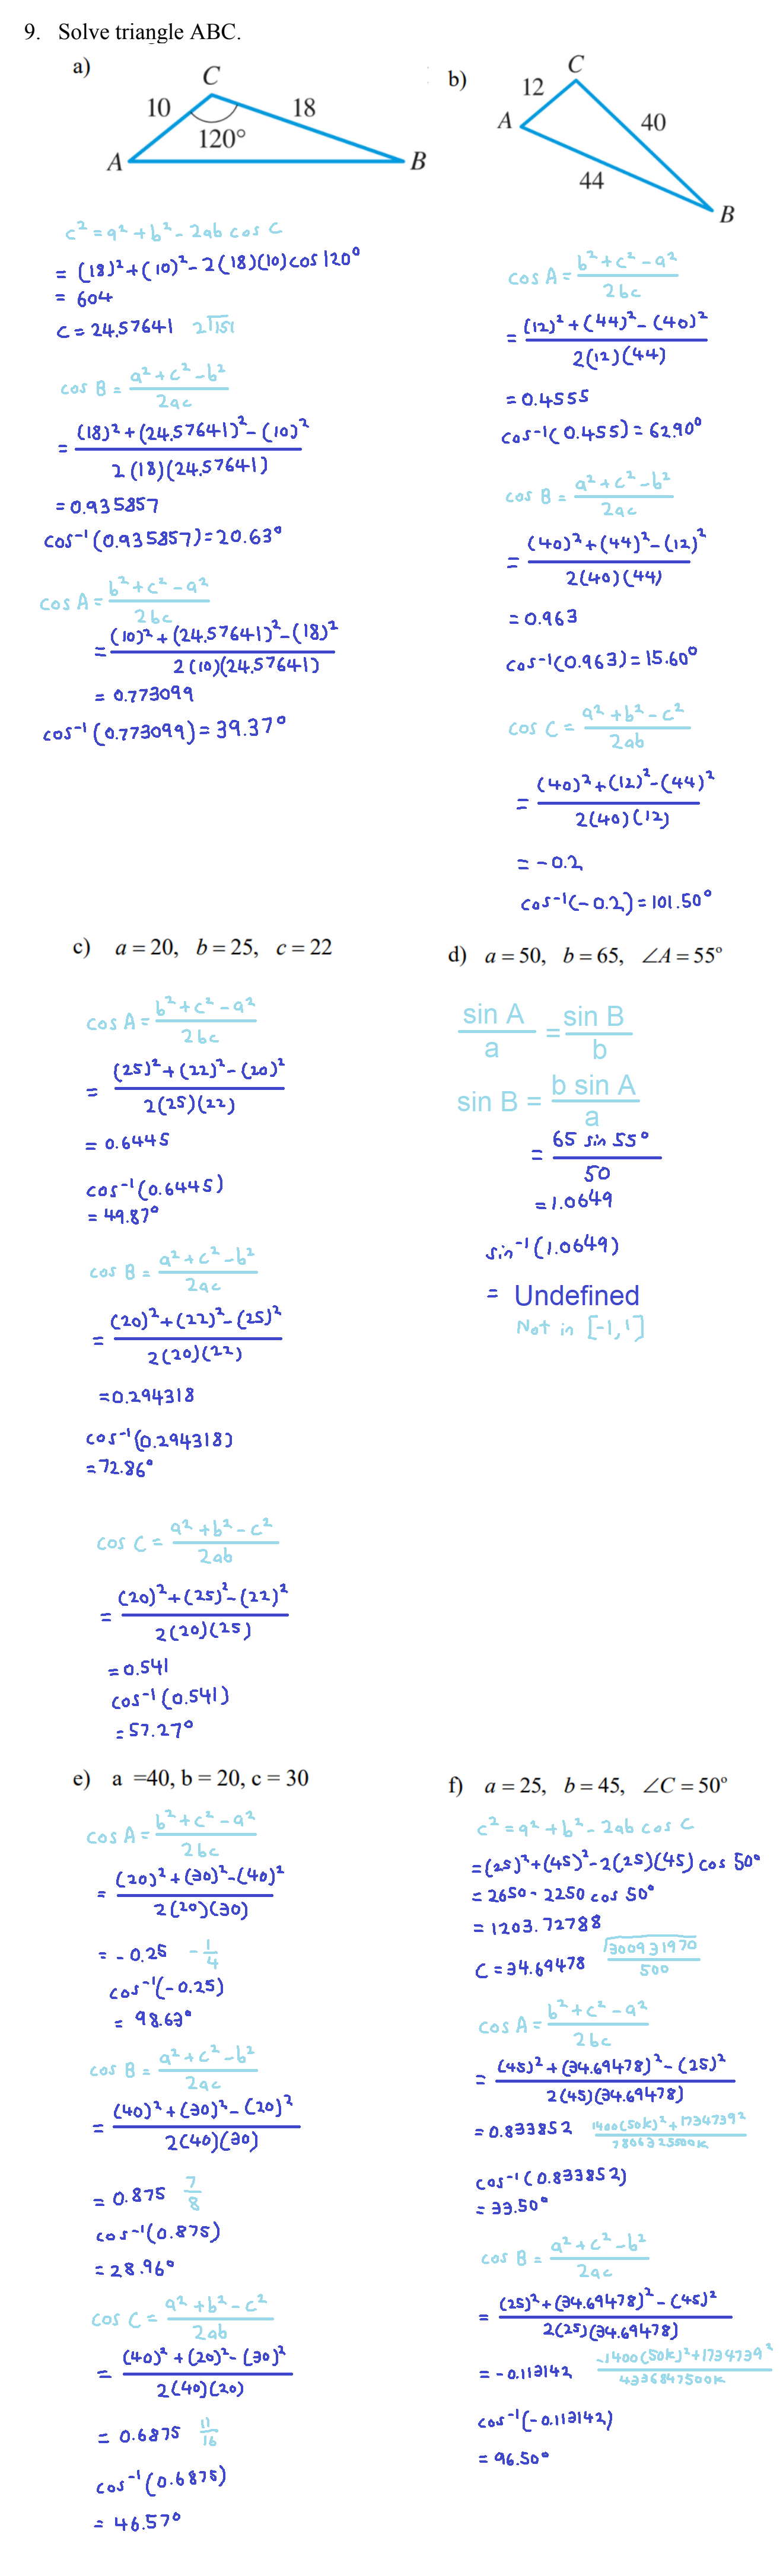 9. Solve triangle ABC.
a)
C
10
18
120°
A
B
c² = a² + b² - 2ab cos C
= (18)² + (10)² - 2(18)(10) cos 120°
= 604
c = 24.57641 2√151
cos B = a² + c² - b² / 2ac
= (18)² + (24.57641)² - (10)² / 2(18)(24.57641)
= 0.935857
cos⁻¹(0.935857) = 20.63°
cos A = b² + c² - a² / 2bc
= (10)² + (24.57641)² - (18)² / 2(10)(24.57641)
= 0.773099
cos⁻¹(0.773099) = 39.37°
b)
C
12
A
40
44
B
cos A = b² + c² - a² / 2bc
= (12)² + (44)² - (40)² / 2(12)(44)
= 0.4555
cos⁻¹(0.455) = 62.90°
cos B = a² + c² - b² / 2ac
= (40)² + (44)² - (12)² / 2(40)(44)
= 0.963
cos⁻¹(0.963) = 15.60°
cos C = a² + b² - c² / 2ab
= (40)² + (12)² - (44)² / 2(40)(12)
= -0.2
cos⁻¹(-0.2) = 101.50°
c) a = 20, b = 25, c = 22
cos A = b² + c² - a² / 2bc
= (25)² + (22)² - (20)² / 2(25)(22)
= 0.6445
cos⁻¹(0.6445)
= 49.87°
cos B = a² + c² - b² / 2ac
= (20)² + (22)² - (25)² / 2(20)(22)
= 0.294318
cos⁻¹(0.294318)
= 72.86°
cos C = a² + b² - c² / 2ab
= (20)² + (25)² - (22)² / 2(20)(25)
= 0.541
cos⁻¹(0.541)
= 57.27°
d) a = 50, b = 65, ∠A = 55°
sin A / a = sin B / b
sin B = b sin A / a
= 65 sin 55° / 50
= 1.0649
sin⁻¹(1.0649)
= Undefined
Not in [-1,1]
e) a =40, b = 20, c = 30
cos A = b² + c² - a² / 2bc
= (20)² + (30)² - (40)² / 2(20)(30)
= -0.25 -1/4
cos⁻¹(-0.25)
= 98.63°
cos B = a² + c² - b² / 2ac
= (40)² + (30)² - (20)² / 2(40)(30)
= 0.875 7/8
cos⁻¹(0.875)
= 28.96°
cos C = a² + b² - c² / 2ab
= (40)² + (20)² - (30)² / 2(40)(20)
= 0.6875 11/16
cos⁻¹(0.6875)
= 46.57°
f) a = 25, b = 45, ∠C = 50°
c² = a² + b² - 2ab cos C
= (25)² + (45)² - 2(25)(45) cos 50°
= 2650 - 2250 cos 50°
= 1203.72788
c = 34.69478 √300931970 / 500
cos A = b² + c² - a² / 2bc
= (45)² + (34.69478)² - (25)² / 2(45)(34.69478)
= 0.833852 1400(50k)² + 1734739² / 7806325500k
cos⁻¹(0.833852)
= 33.50°
cos B = a² + c² - b² / 2ac
= (25)² + (34.69478)² - (45)² / 2(25)(34.69478)
= -0.113142 -1400(50k)² + 1734739² / 4336847500k
cos⁻¹(-0.113142)
= 96.50°